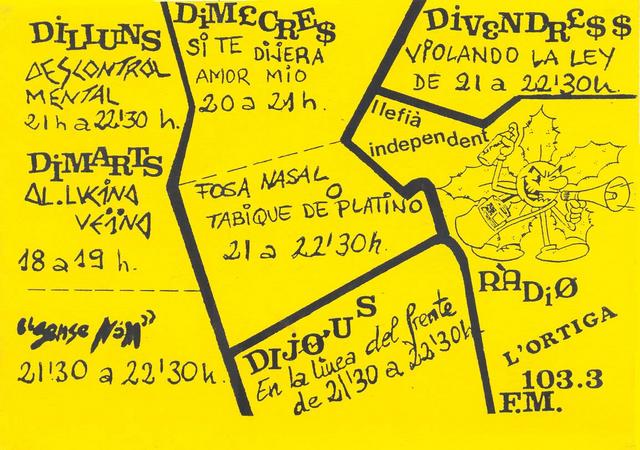 DiLLUNS
DESCONTROL
MENTAL
21h a 22'30 h.
DiMARTS
AL.LUCINA
VEïNA
18 a 19 h.
"sense Nom"
21'30 a 22'30h.
DiM£CRE$
SI TE DIJERA
AMOR MIO
20 a 21h.
FOSA NASAL
O
TABIQUE DE PLATINO
21 a 22'30h.
DIJOUS
En la línea del frente
de 21'30 a 22'30h.
DiVENDR£$$
VIOLANDO LA LEY
DE 21 a 22'30h.
llefià
independent
RÀDiO
L'ORTIGA
103.3
F.M.